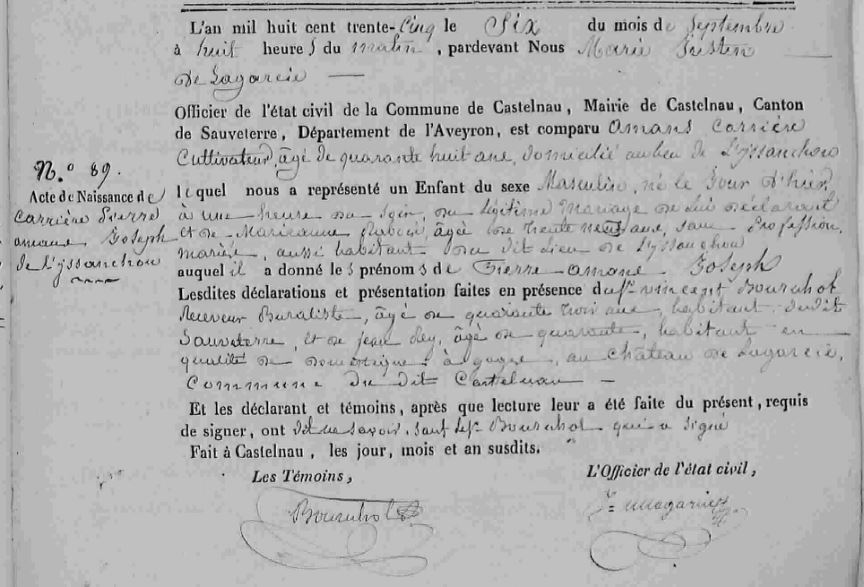 L'an mil huit cent trente-Cinq le Six du mois de Septembre
à huit heures du matin, pardevant Nous Marie
de Lagarcie
Officier de l'état civil de la Commune de Castelnau, Mairie de Castelnau, Canton
de Sauveterre, Département de l'Aveyron, est comparu Amans Carrière
Cultivateur, âgé de quarante huit ans, domicilié au lieu de Lyssanchou
N.o 89.
lequel nous a représenté un Enfant du sexe Masculin, né le Jour d'hier,
Acte de Naissance de
Carrière Pierre
amans Joseph
de l'yssanchou
à une heure du Soir, du légitime mariage de lui déclarant
et de Marianne âgée de trente neuf ans, sans Profession,
mariée, aussi habitant du dit lieu de Lyssanchou
auquel il a donné les prénoms de Pierre-amans Joseph
Lesdites déclarations et présentation faites en présence du Sr. vincent Bourchol
Receveur Buraliste, âgé de quarante trois ans, habitant dudit
Sauveterre, et de jean Rey, âgé de quarante, habitant en
qualité de domestique à gages, au château de Lagarcie,
Commune du dit Castelnau
Et les déclarant et témoins, après que lecture leur a été faite du présent, requis
de signer, ont dit ne savoir, sauf le Sr. Bourchol qui a signé
Fait à Castelnau, les jour, mois et an susdits.
Les Témoins,
L'Officier de l'état civil,
Bourchol